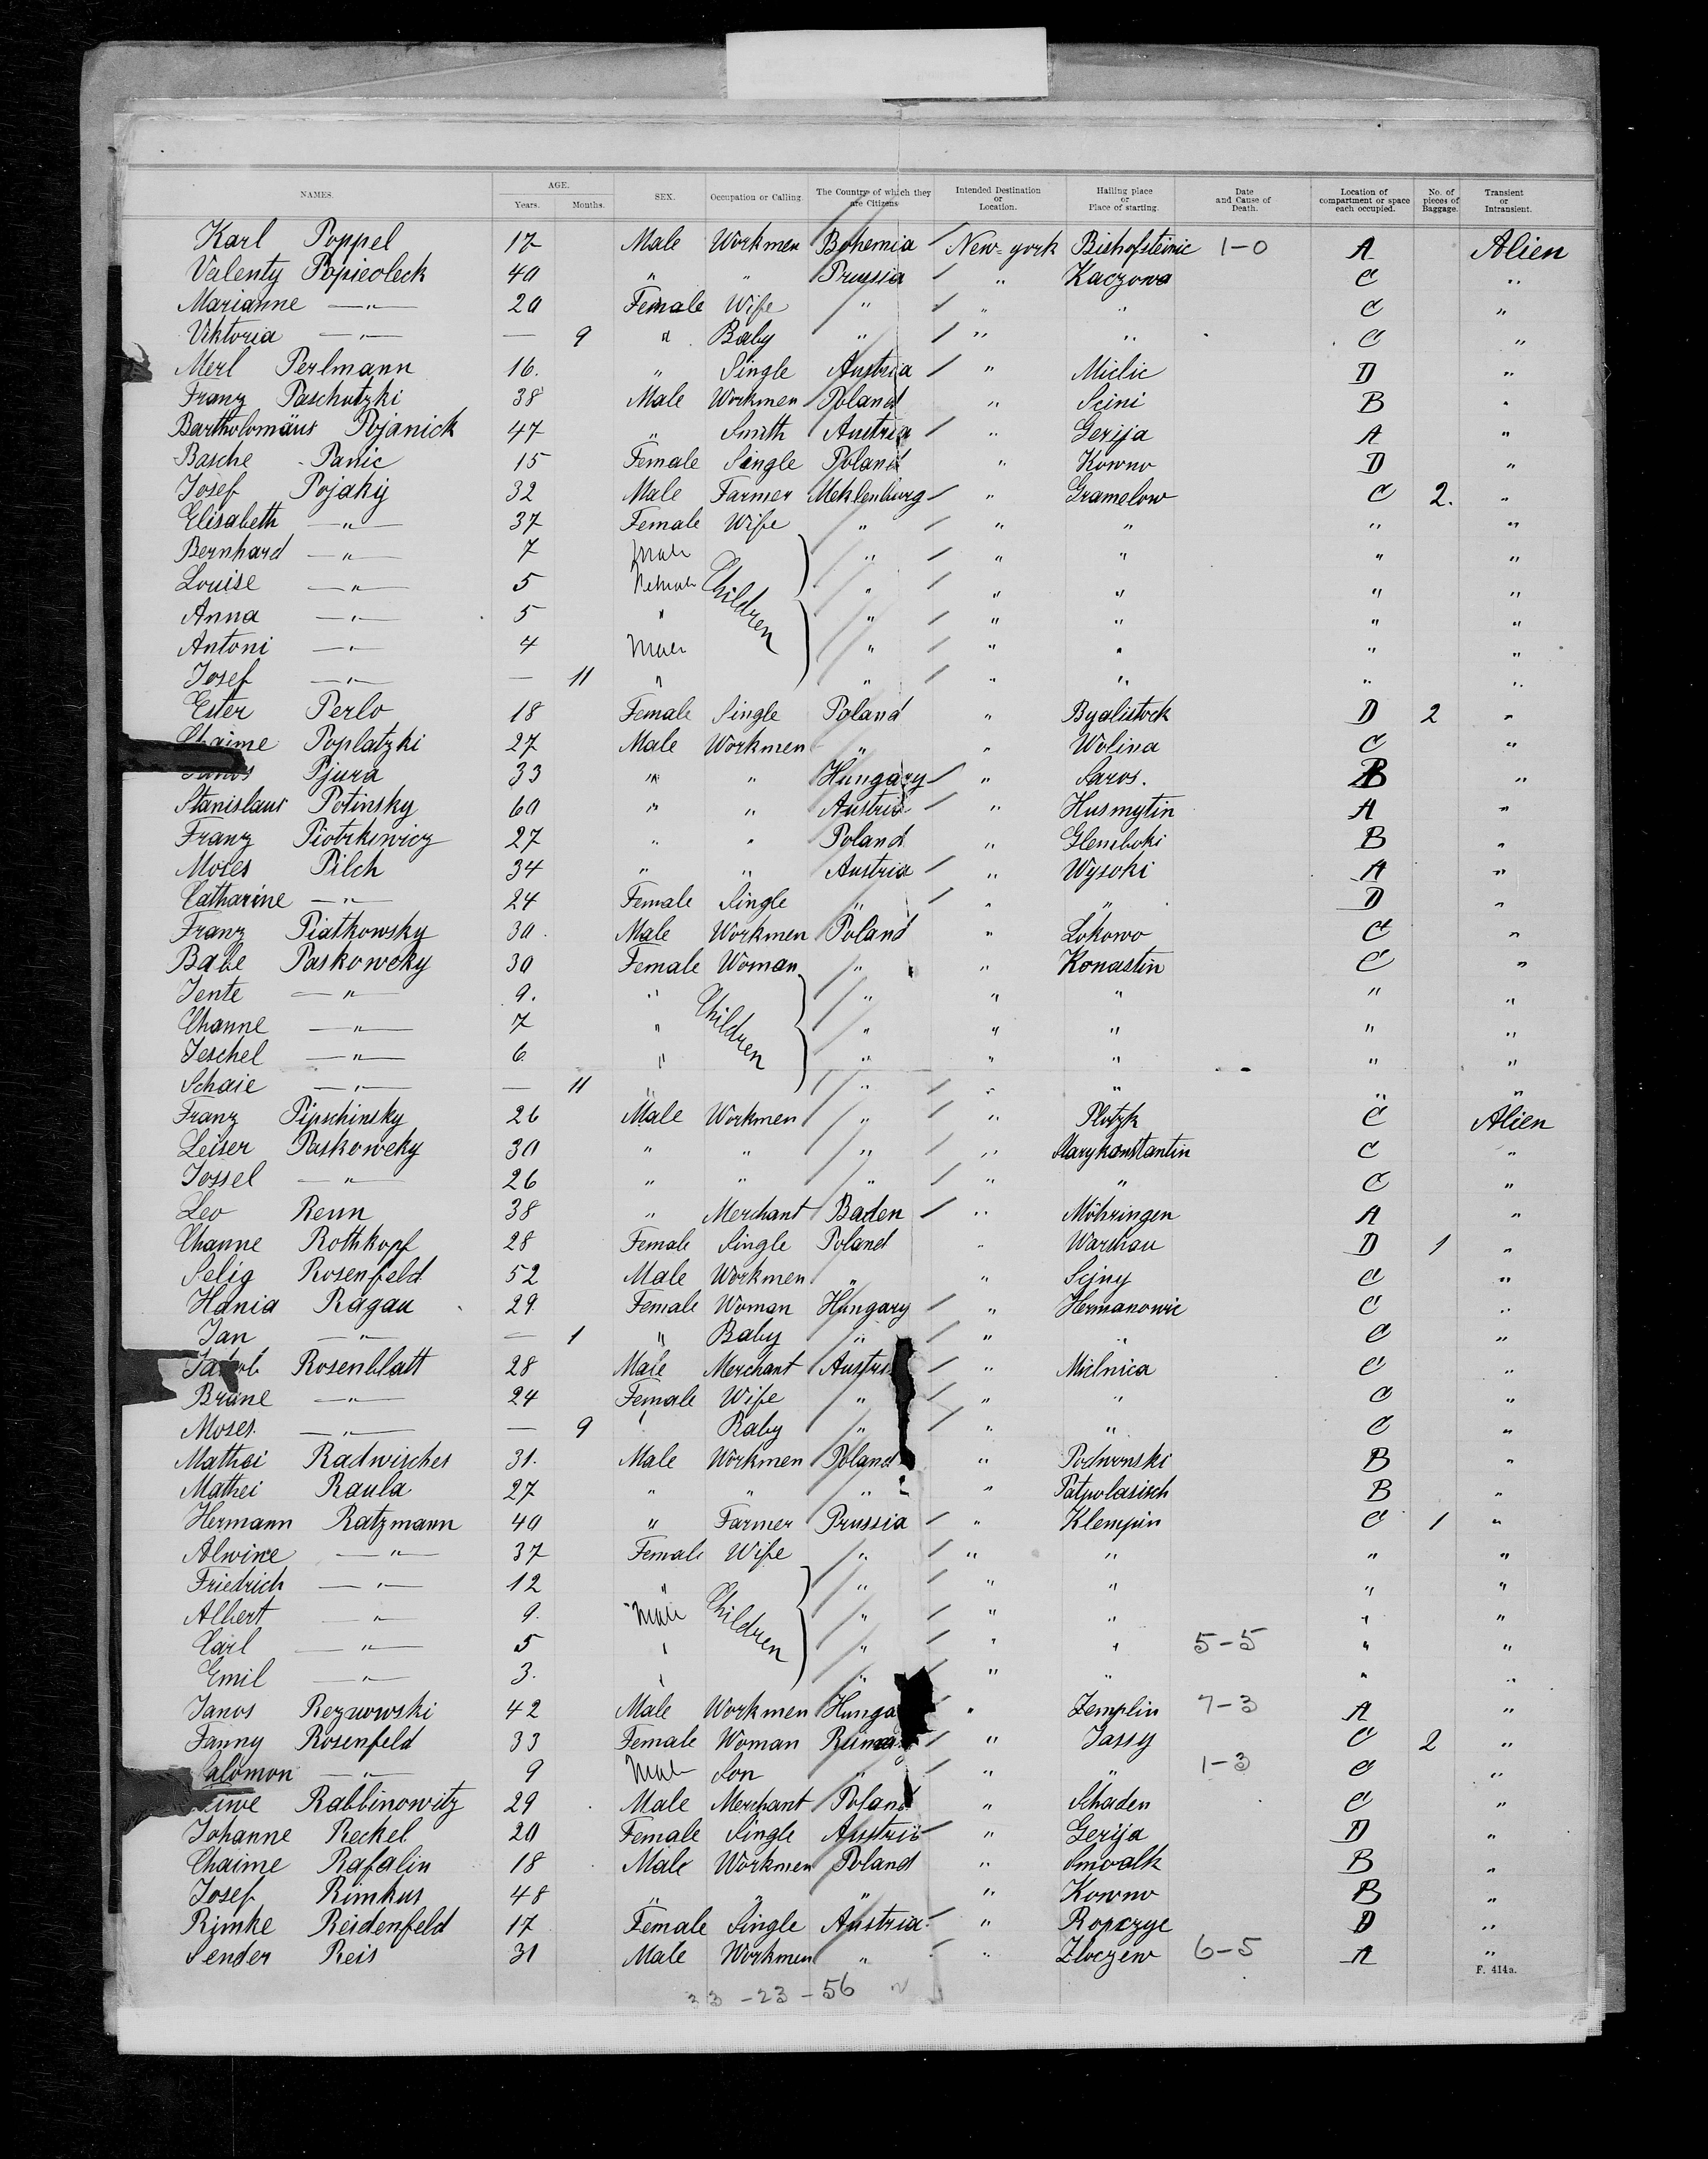 NAMES. AGE. Years. Months. SEX. Occupation or Calling. The Country of which they are Citizens Intended Destination or Location. Hailing place or Place of starting. Date and Cause of Death. Location of compartment or space each occupied. No. of pieces of Baggage. Transient or Intransient.
Karl Poppel 17 Male Workmen Bohemia / New-york Bishofsteinic 1-0 A Alien
Valenty Popieoleck 40 " " Prussia / " Kaczowa C "
Marianne —"— 20 Female Wife " / " " C "
Viktoria —"— — 9 " Baby " / " " C "
Merl Perlmann 16. " Single Austria / " Miclic D "
Franz Paschutzki 38 Male Workmen Poland " Scini B "
Bartholomäus Pojanick 47 " Smith Austria / " Gerija A "
Basche Panic 15 Female Single Poland " Kowno D "
Josef Pojakij 32 Male Farmer Meklenburg / " Gramelow C 2. "
Elisabeth —"— 37 Female Wife " / " " " "
Bernhard —"— 7 Male Children " / " " " "
Louise —"— 5 Female " / " " " "
Anna —"— 5 " " / " " " "
Antoni —"— 4 Male " / " " " "
Josef —"— — 11 " " / " " " "
Ester Perlo 18 Female Single Poland " Byalistock D 2 "
Chaime Poplatzki 27 Male Workmen " " Wolina C "
Janos Pjura 33 " " Hungary / " Saros. B "
Stanislaus Potinsky 60 " " Austria / " Husmytin A "
Franz Piotrkiwicz 27 " " Poland " Glemboki B "
Moses Pilch 34 " " Austria / " Wysoki A "
Catharine —"— 24 Female Single " / " " D "
Franz Piatkowsky 30. Male Workmen Poland " Lokowo C "
Babe Paskowcky 30 Female Woman " " Konastin C "
Jente —"— 9. " Children " " " " "
Channe —"— 7 " " " " " "
Jeschel —"— 6 " " " " " "
Schaie —"— — 11 " " / " " " "
Franz Pipschinsky 26 Male Workmen " / " Plotzk C Alien
Leiser Paskowcky 30 " " " / " Starykonstantin C "
Jossel —"— 26 " " " / " " C "
Leo Renn 38 " Merchant Baden / " Möhringen A "
Channe Rothkopf 28 Female Single Poland " Warshau D 1 "
Selig Rosenfeld 52 Male Workmen " " Sejny C "
Hania Ragau 29. Female Woman Hungary / " Hermanowic C "
Jan —"— — 1 " Baby " / " " C "
Jakob Rosenblatt 28 Male Merchant Austri / " Mielnica C "
Brane —"— 24 Female Wife " / " " C "
Moses. —"— — 9 " Baby " / " " C "
Mathei Radwisches 31. Male Workmen Poland " Podwonski B "
Mathei Raula 27 " " " " Patpolasisch B "
Hermann Ratzmann 40 " Farmer Prussia / " Klempin C 1 "
Alwine —"— 37 Female Wife " / " " " "
Friedrich —"— 12 " Children " / " " " "
Albert —"— 9. Male " / " " " "
Carl —"— 5 " " / " " 5-5 " "
Emil —"— 3. " " / " " " "
Janos Rezuwwski 42 Male Workmen Hunga " Zemplin 7-3 A "
Fanny Rosenfeld 33 Female Woman / " Jassy C 2 "
Salomon —"— 9 Male Son " / " " 1-3 C "
Rabbinowitz 29 Male Merchant Poland " Schaden C "
Johanne Reckel 20 Female Single Austria " Gerija D "
Chaime Rafalin 18 Male Workmen Poland " Smoalk B "
Josef Rimkus 48 " " " " Kowno B "
Rimke Reidenfeld 17 Female Single Austria / " Ropczyc D "
Sender Reis 31 Male Workmen " " Zloczew 6-5 A "
F. 414a.
33-23-56